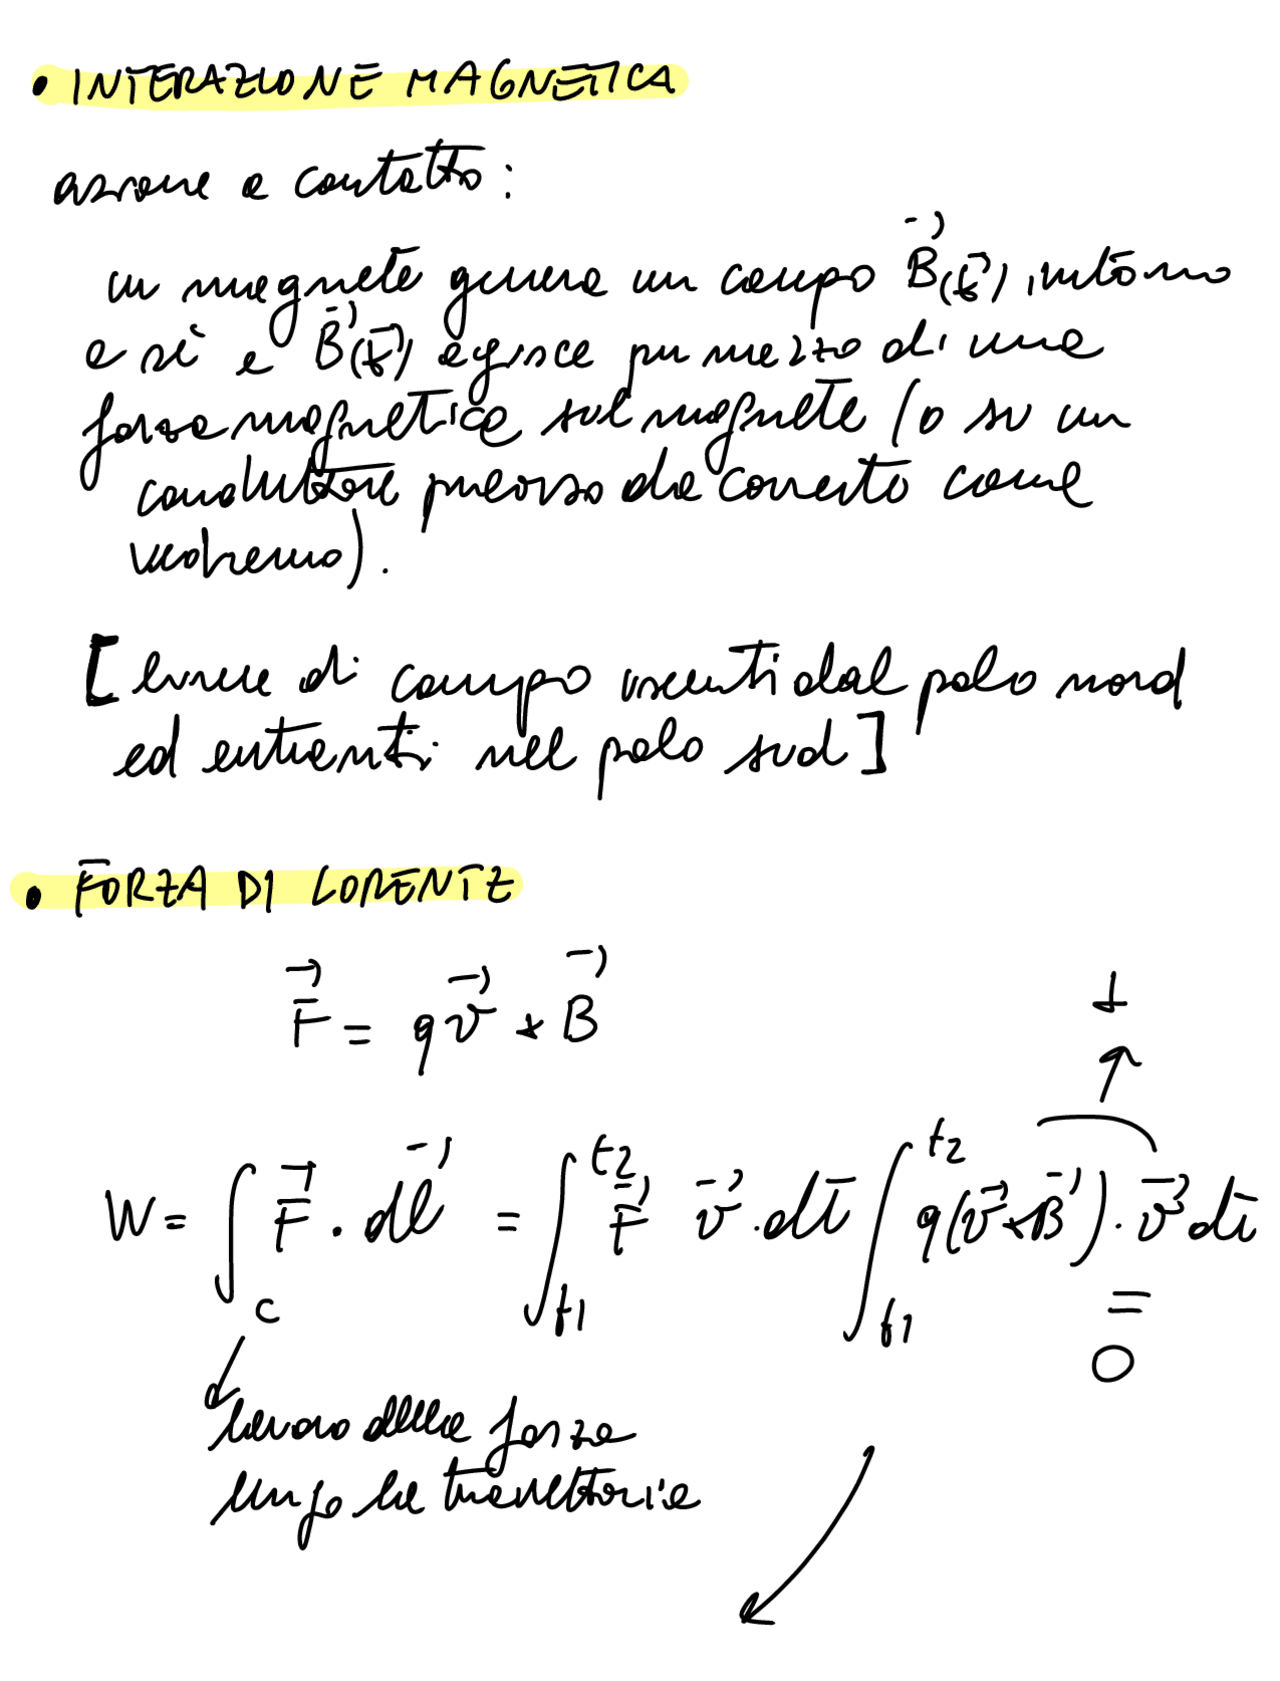 • INTERAZIONE MAGNETICA
azione a contatto:
un magnete genera un campo B⃗(r⃗) intorno
a sè e B⃗(r⃗) agisce per mezzo di una
forza magnetica sul magnete (o su un
conduttore percorso da corrente come
vedremo).
[linee di campo uscenti dal polo nord
ed entranti nel polo sud]
• FORZA DI LORENTZ
F⃗ = qv⃗ × B⃗
⊥
W = ∫_C F⃗ · dl⃗ = ∫_{t1}^{t2} F⃗ v⃗ · dt ∫_{t1}^{t2} q(v⃗ × B⃗) · v⃗ dt
=
0
lavoro della forza
lungo la traiettoria